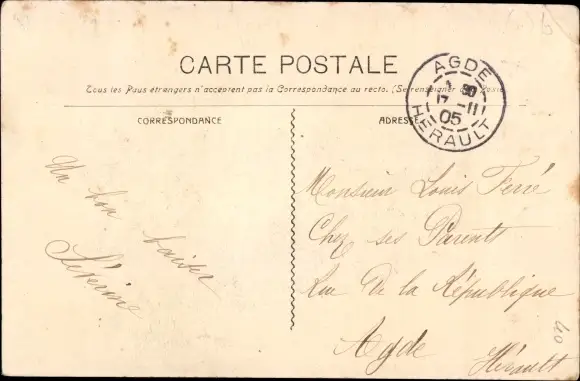 CARTE POSTALE
Tous les Pays étrangers n'acceptent pas la Correspondance au recto. (Se renseigner à la Poste)
CORRESPONDANCE
ADRESSE
AGDE
17 -11
05
HÉRAULT
Un bon baiser
Séverine
Monsieur Louis Ferré
Chez ses Parents
Rue De la République
Agde
Hérault
40